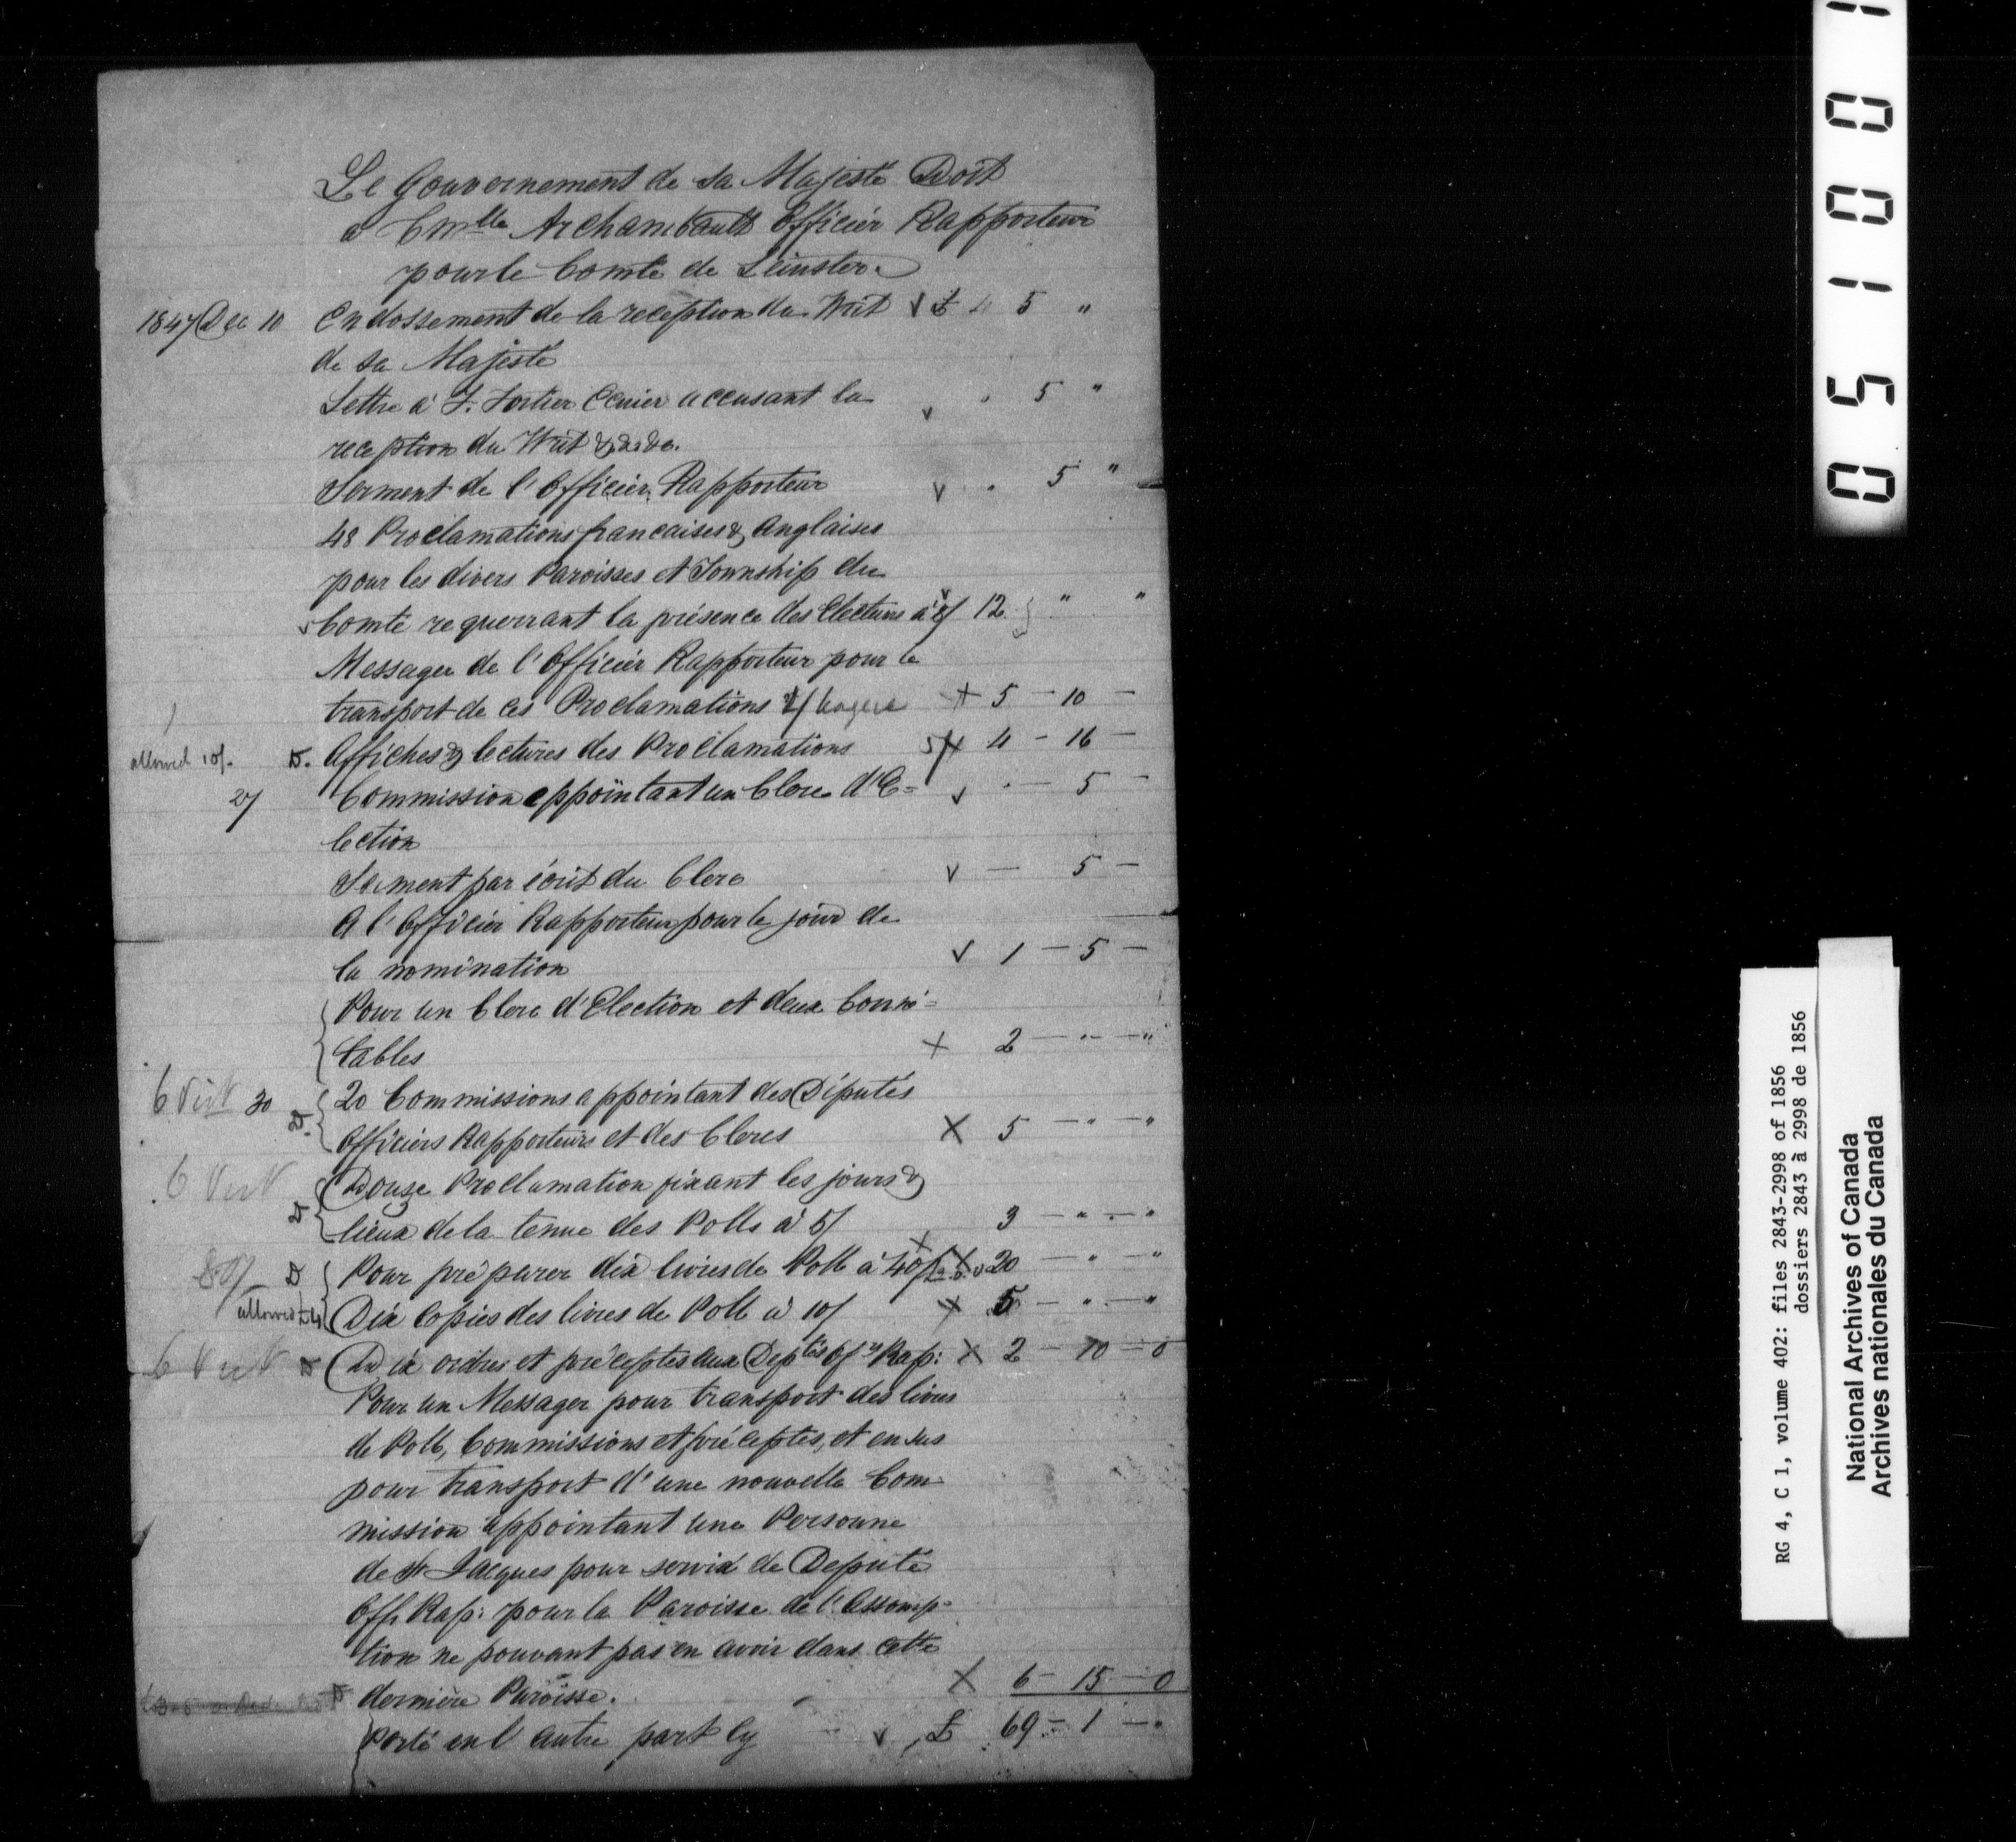 Le Gouvernement de Sa Majesté Doit
à Cmlle Archambault Officier Rapporteur
pour le Comté de Leinster.
1847 Dec 10 Endossement de la reception du Writ v £ " 5 "
de Sa Majesté
Lettre à F. Fortier Ecuier accusant la v " 5 "
reception du Writ &c. &c.
Serment de l'Officier Rapporteur v " 5 "
48 Proclamations francaises & Anglaises
pour les divers Paroisses et Township du
Comté requerrant la présence des Electeurs à 5/ 12 " "
Messager de l'Officier Rapporteur pour le
transport de ces Proclamations X 5 - 10 -
allowed 10/- D. Affiches & lectures des Proclamations X 4 - 16 -
2/ Commission appointant un Clerc d'E= v - 5 -
lection
Serment par écrit du Clerc v - 5 -
A l'Officier Rapporteur pour le jour de
la nomination v 1 - 5 -
Pour un Clerc d'Election et deux Conné=
tables X 2 - " - "
6 30 20 Commissions appointant des Députés
D. Officiers Rapporteurs et des Clercs X 5 - " - "
6 Douze Proclamation fixant les jours &
D lieux de la tenue des Polls à 5/ 3 - " - "
80/- D Pour préparer dix livres de Poll à 40/ X 20 - " - "
allowed £4 Dix Copies des livres de Poll à 10/ X 5 - " - "
6 D Dix ordres et préceptes aux Deptés Ofrs Rap: X 2 - 10 - 0
Pour un Messager pour transport des livres
de Poll, Commissions et préceptes, et en sus
pour transport d'une nouvelle Com
mission appointant une Personne
de St Jacques pour servir de Deputé
Off. Rap: pour la Paroisse de l'Assomp=
tion ne pouvant pas en avoir dans cette
D dernière Paroisse. X 6 - 15 - 0
Porté en l'autre part v £ 69 - 1 - "
051001
RG 4, C 1, volume 402: files 2843-2998 of 1856
dossiers 2843 à 2998 de 1856
National Archives of Canada
Archives nationales du Canada